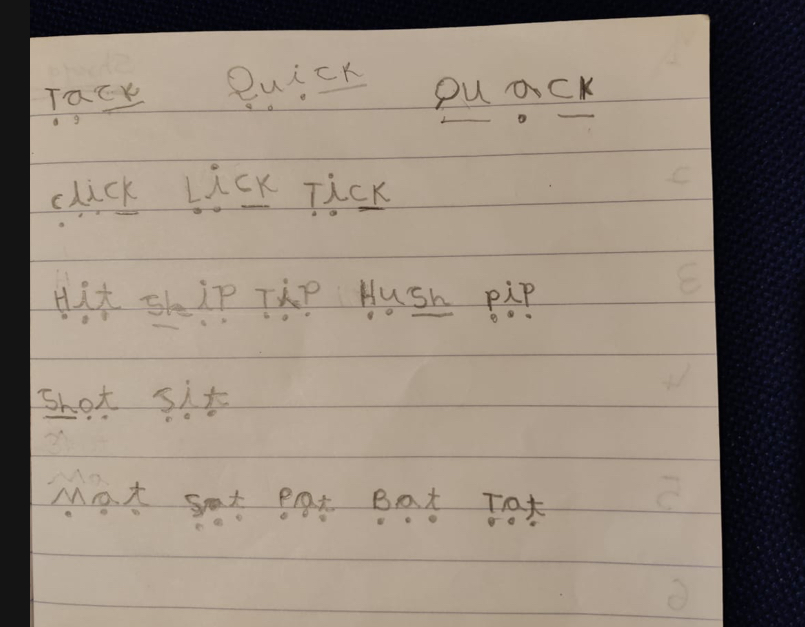 Tack Quick Quack
click Lick Tick
Hit Ship Tip Hush pip
Shot Sit
Mat Sat Pat Bat Tat